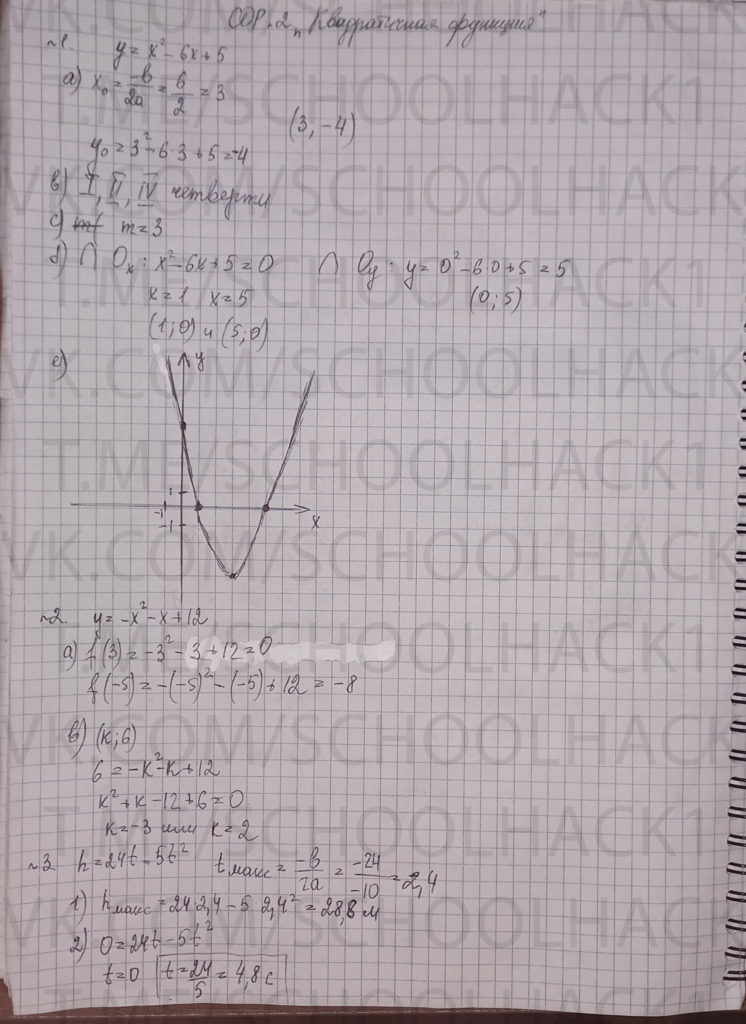 СОР-2 "Квадратичная функция"
№1. y = x² - 6x + 5
а) x₀ = -b/2a = 6/2 = 3
(3, -4)
y₀ = 3² - 6·3 + 5 = -4
в) I, II, IV четверти
с) m = 3
d) ∩ Ox: x² - 6x + 5 = 0 ∩ Oy: y = 0² - 6·0 + 5 = 5
x = 1 x = 5 (0; 5)
(1; 0) и (5; 0)
е) y
1
-1
-1
x
№2. y = -x² - x + 12
а) f(3) = -3² - 3 + 12 = 0
f(-5) = -(-5)² - (-5) + 12 = -8
в) (k; 6)
6 = -k² - k + 12
k² + k - 12 + 6 = 0
k = -3 или k = 2
№3. h = 24t - 5t² tмакс = -b/2a = -24/-10 = 2,4
1) hмакс = 24·2,4 - 5·2,4² = 28,8 м
2) 0 = 24t - 5t²
t = 0 t = 24/5 = 4,8 с
VK.COM/SCHOOLHACK1
T.ME/SCHOOLHACK1